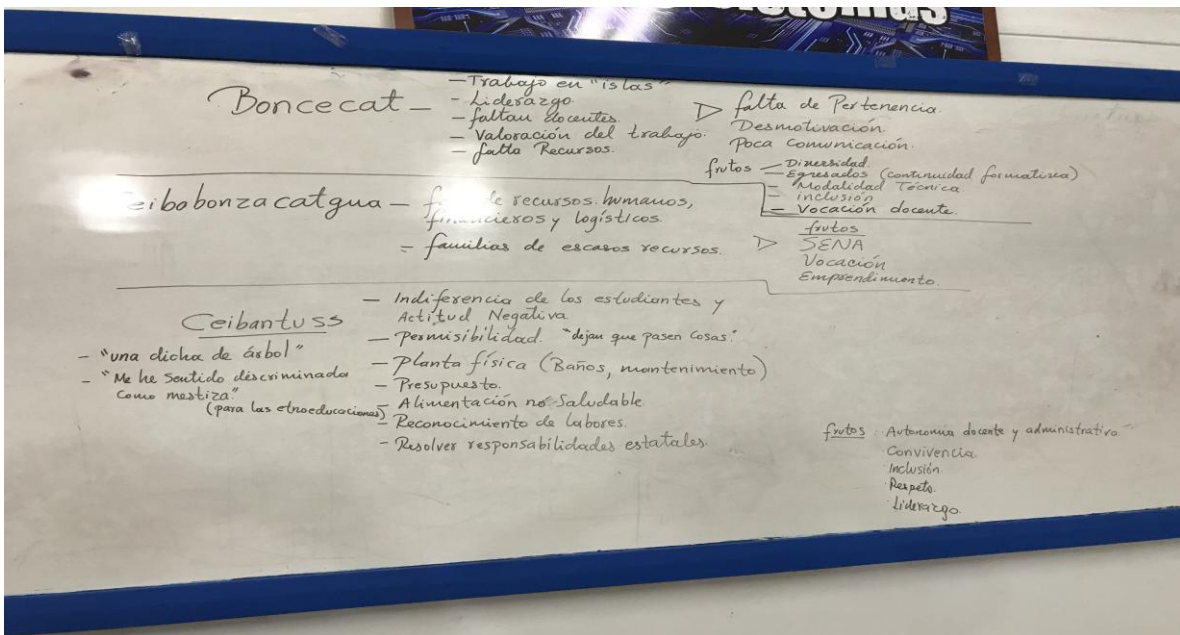 Sistemas
Boncecat —
— Trabajo en "islas"
- Liderazgo.
- faltan docentes.
- Valoración del trabajo.
- falta Recursos.
▷ falta de Pertenencia.
Desmotivación.
Poca Comunicación.
frutos — Diversidad.
— Egresados (continuidad formativa)
- Modalidad Técnica
- inclusión
- Vocación docente.
eibobonzacatgua — de recursos humanos,
financieros y logísticos.
- familias de escasos recursos.
▷ frutos
SENA
Vocación
Emprendimiento.
Ceibantuss
- "una dicha de árbol"
- "Me he Sentido discriminada
como mestiza."
(para las etnoeducaciones)
— Indiferencia de los estudiantes y
Actitud Negativa.
— Permisibilidad. "dejan que pasen cosas."
— Planta física (Baños, mantenimiento)
- Presupuesto.
- Alimentación no Saludable.
- Reconocimiento de labores.
- Resolver responsabilidades estatales.
frutos Autonomia docente y administrativa
· Convivencia.
· Inclusión
· Respeto.
· Liderazgo.